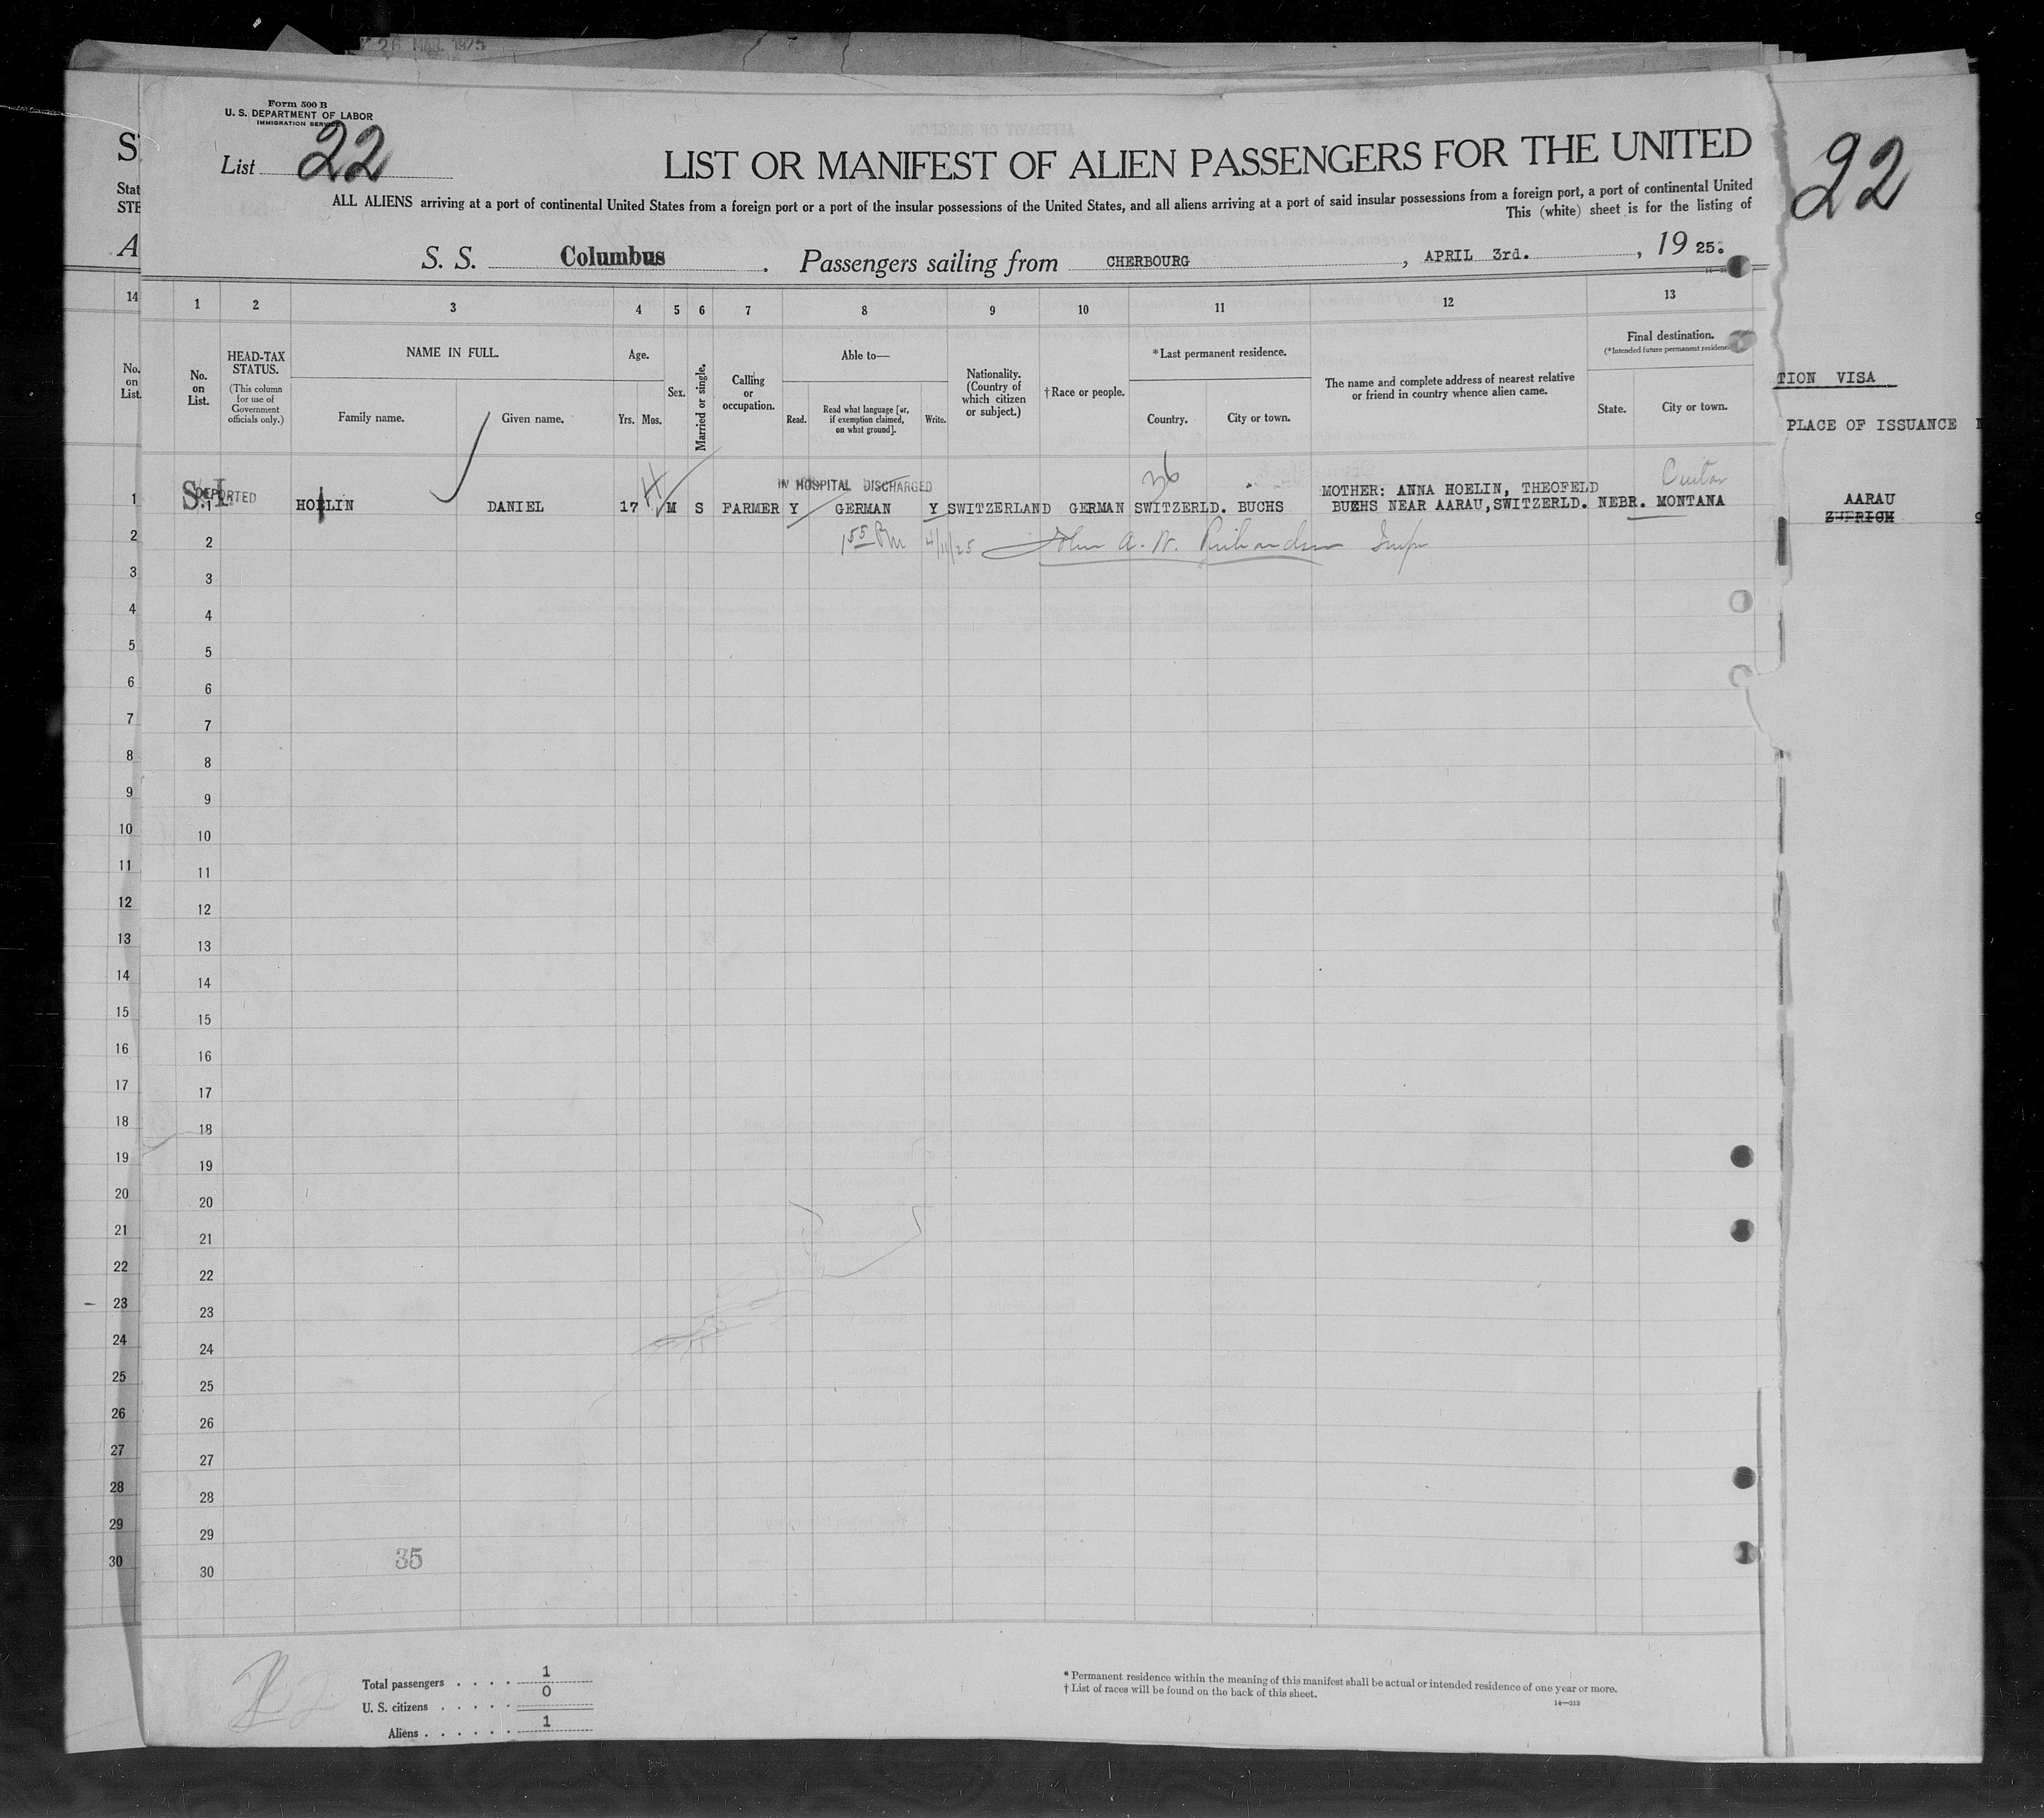 26 MAR. 1925
Form 500 B
U. S. DEPARTMENT OF LABOR
IMMIGRATION SERVICE
List 22
LIST OR MANIFEST OF ALIEN PASSENGERS FOR THE UNITED
22
ALL ALIENS arriving at a port of continental United States from a foreign port or a port of the insular possessions of the United States, and all aliens arriving at a port of said insular possessions from a foreign port, a port of continental United
This (white) sheet is for the listing of
S. S. Columbus. Passengers sailing from CHERBOURG, APRIL 3rd., 1925.
14 1 2 3 4 5 6 7 8 9 10 11 12 13
No. on List.
No. on List.
HEAD-TAX STATUS.
(This column for use of Government officials only.)
NAME IN FULL.
Family name. Given name.
Age.
Yrs. Mos.
Sex.
Married or single.
Calling or occupation.
Able to—
Read. Read what language [or, if exemption claimed, on what ground]. Write.
Nationality. (Country of which citizen or subject.)
†Race or people.
*Last permanent residence.
Country. City or town.
The name and complete address of nearest relative or friend in country whence alien came.
Final destination.
(*Intended future permanent residence)
State. City or town.
TION VISA
PLACE OF ISSUANCE
S.I. DEPORTED
IN HOSPITAL DISCHARGED
26
1 1 HOELIN DANIEL 17 M S FARMER Y GERMAN Y SWITZERLAND GERMAN SWITZERLD. BUCHS MOTHER: ANNA HOELIN, THEOFELD
BUEHS NEAR AARAU, SWITZERLD. NEBR. MONTANA
AARAU
ZURICH
1 55 Pm 4/11/25 John A. W. Richardson
2 2
3 3
4 4
5 5
6 6
7 7
8 8
9 9
10 10
11 11
12 12
13 13
14 14
15 15
16 16
17 17
18 18
19 19
20 20
21 21
22 22
23 23
24 24
25 25
26 26
27 27
28 28
29 29
30 30
35
Total passengers . . . . 1
U. S. citizens . . . . . 0
Aliens . . . . . . 1
* Permanent residence within the meaning of this manifest shall be actual or intended residence of one year or more.
† List of races will be found on the back of this sheet.
14—213